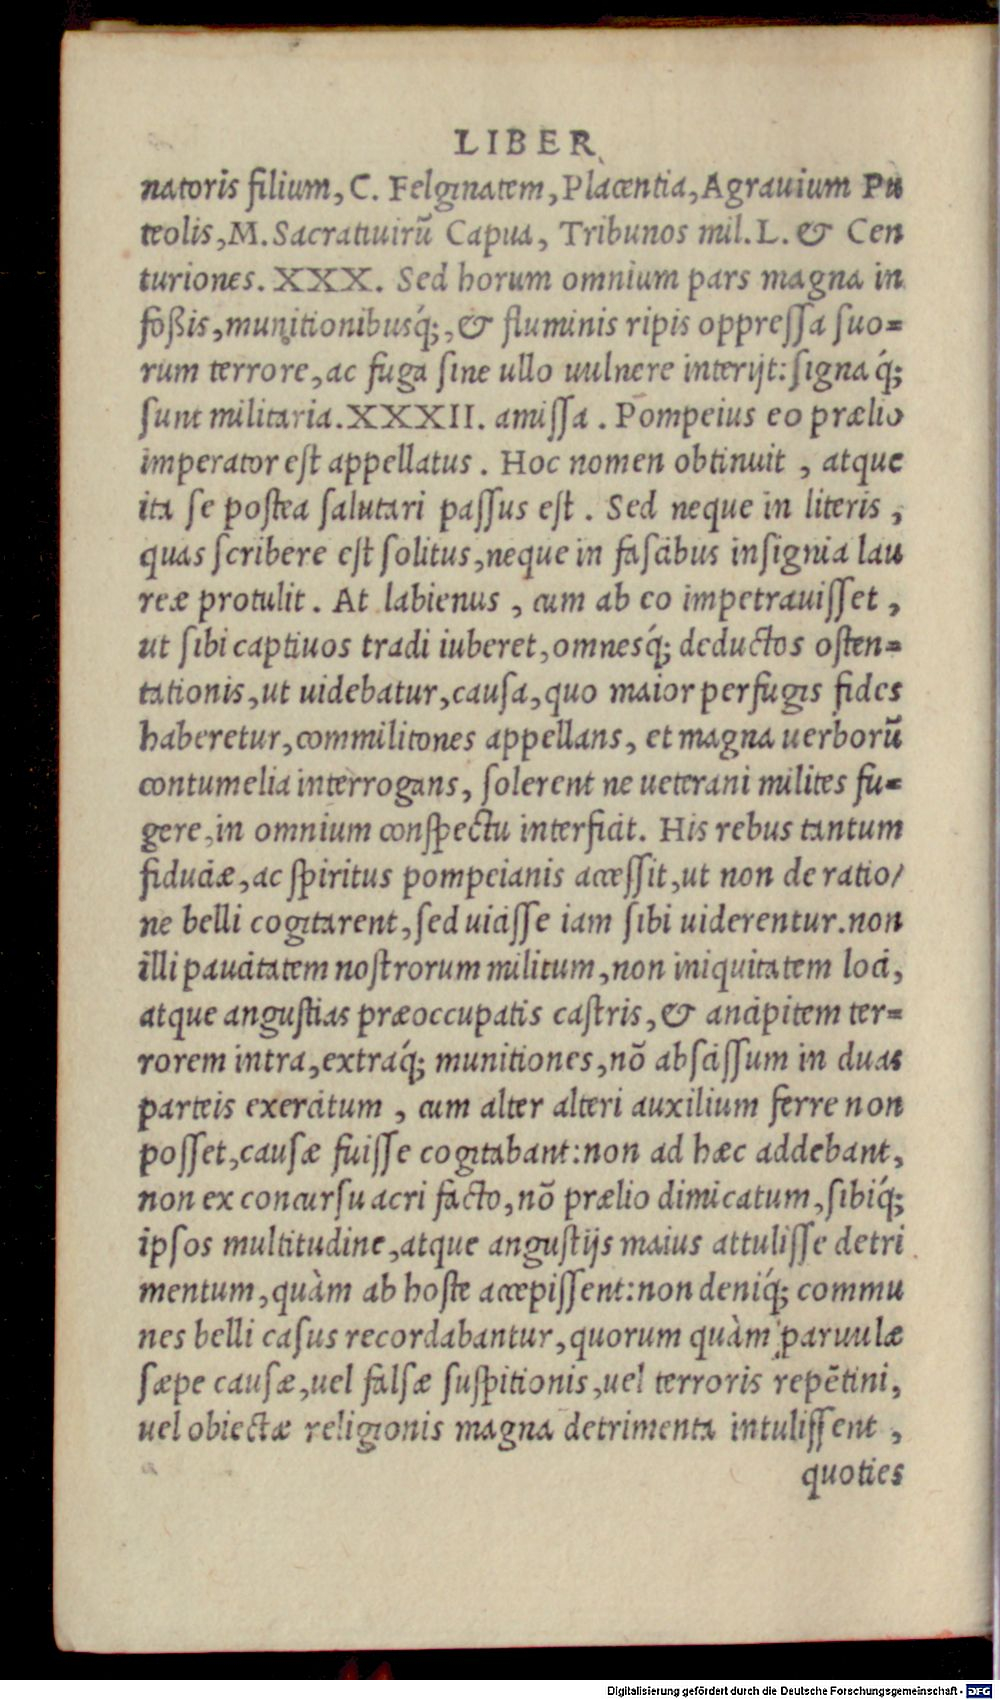 LIBER
natoris filium, C. Felginatem, Placentia, Agrauium Pu
teolis, M. Sacratiuirũ Capua, Tribunos mil. L. & Cen
turiones. XXX. Sed horum omnium pars magna in
foßis, munitionibusq́;, & fluminis ripis oppressa suo=
rum terrore, ac fuga sine ullo uulnere interijt: signa q́;
sunt militaria. XXXII. amissa. Pompeius eo prælio
imperator est appellatus. Hoc nomen obtinuit, atque
ita se postea salutari passus est. Sed neque in literis,
quas scribere est solitus, neque in fascibus insignia lau
reæ protulit. At labienus, cum ab eo impetrauisset,
ut sibi captiuos tradi iuberet, omnesq́; deductos osten=
tationis, ut uidebatur, causa, quo maior perfugis fides
haberetur, commilitones appellans, et magna uerborũ
contumelia interrogans, solerent ne ueterani milites fu=
gere, in omnium conspectu interficit. His rebus tantum
fiduciæ, ac spiritus pompeianis accessit, ut non de ratio/
ne belli cogitarent, sed uicisse iam sibi uiderentur. non
illi paucitatem nostrorum militum, non iniquitatem loci,
atque angustias præoccupatis castris, & ancipitem ter=
rorem intra, extraq́; munitiones, nõ abscissum in duas
parteis exercitum, cum alter alteri auxilium ferre non
posset, causæ fuisse cogitabant: non ad hæc addebant,
non ex concursu acri facto, nõ prælio dimicatum, sibiq́;
ipsos multitudine, atque angustijs maius attulisse detri
mentum, quàm ab hoste accepissent: non deniq́; commu
nes belli casus recordabantur, quorum quàm paruulæ
sæpe causæ, uel falsæ suspitionis, uel terroris repẽtini,
uel obiectæ religionis magna detrimenta intulissent,
quoties
Digitalisierung gefördert durch die Deutsche Forschungsgemeinschaft - DFG